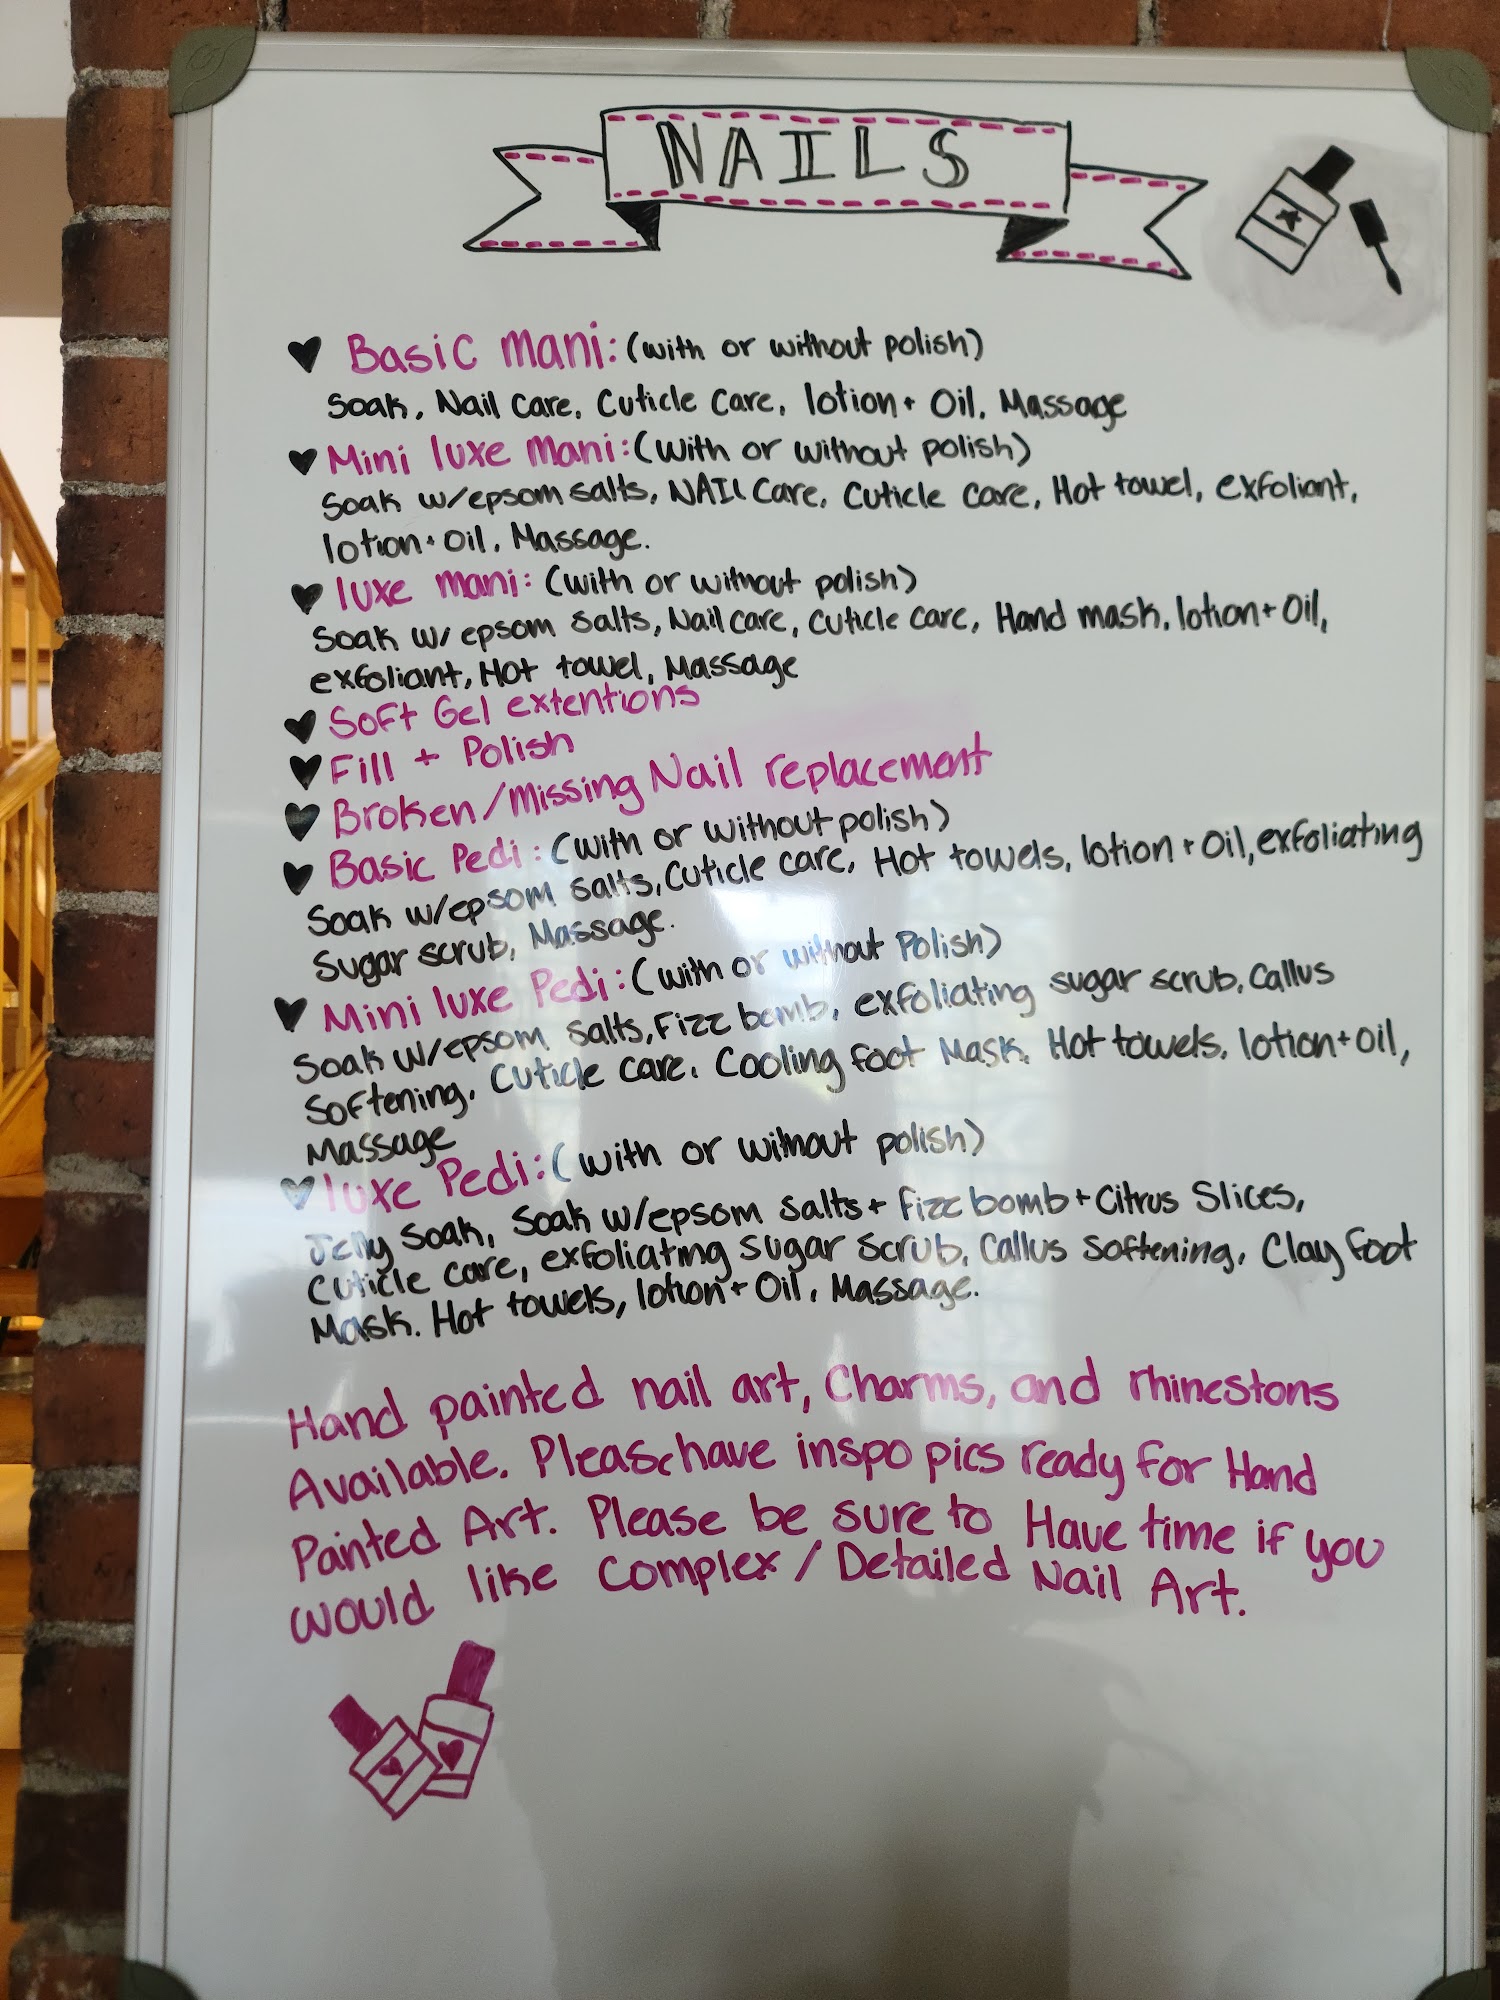 NAILS
♥ Basic mani: (with or without polish)
Soak, Nail Care, Cuticle Care, lotion + Oil, Massage
♥ Mini luxe mani: (with or without polish)
Soak w/epsom salts, NAIL Care, Cuticle Care, Hot towel, exfoliant,
lotion + Oil, Massage.
♥ luxe mani: (with or without polish)
Soak w/ epsom salts, Nail care, cuticle care, Hand mask, lotion + Oil,
exfoliant, Hot towel, Massage
♥ Soft Gel extentions
♥ Fill + Polish
♥ Broken/missing Nail replacement
♥ Basic Pedi: (with or without polish)
Soak w/epsom salts, Cuticle care, Hot towels, lotion + Oil, exfoliating
Sugar scrub, Massage.
♥ Mini luxe Pedi: (with or without Polish)
Soak w/epsom salts, Fizz bomb, exfoliating sugar scrub, Callus
Softening, Cuticle care, Cooling foot Mask, Hot towels, lotion + oil,
Massage
♥ luxe Pedi: (with or without polish)
Jelly Soak, Soak w/epsom salts + Fizz bomb + Citrus Slices,
Cuticle care, exfoliating sugar scrub, Callus Softening, Clay foot
Mask. Hot towels, lotion + Oil, Massage.
Hand painted nail art, Charms, and rhinestons
Available. Please have inspo pics ready for Hand
Painted Art. Please be sure to Have time if you
would like Complex / Detailed Nail Art.